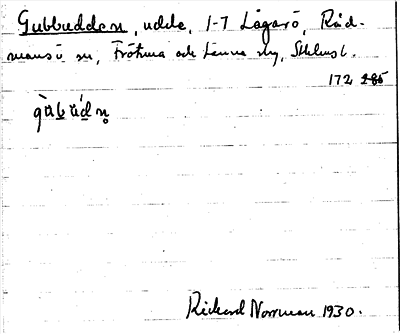 Gubbudden, udde, 1-7 Lågarö, Råd-
mansö sn, Frötuna och Länna skg, Sthlms l.
172 285
gùbúdn̥
Rickard Norrman 1930.